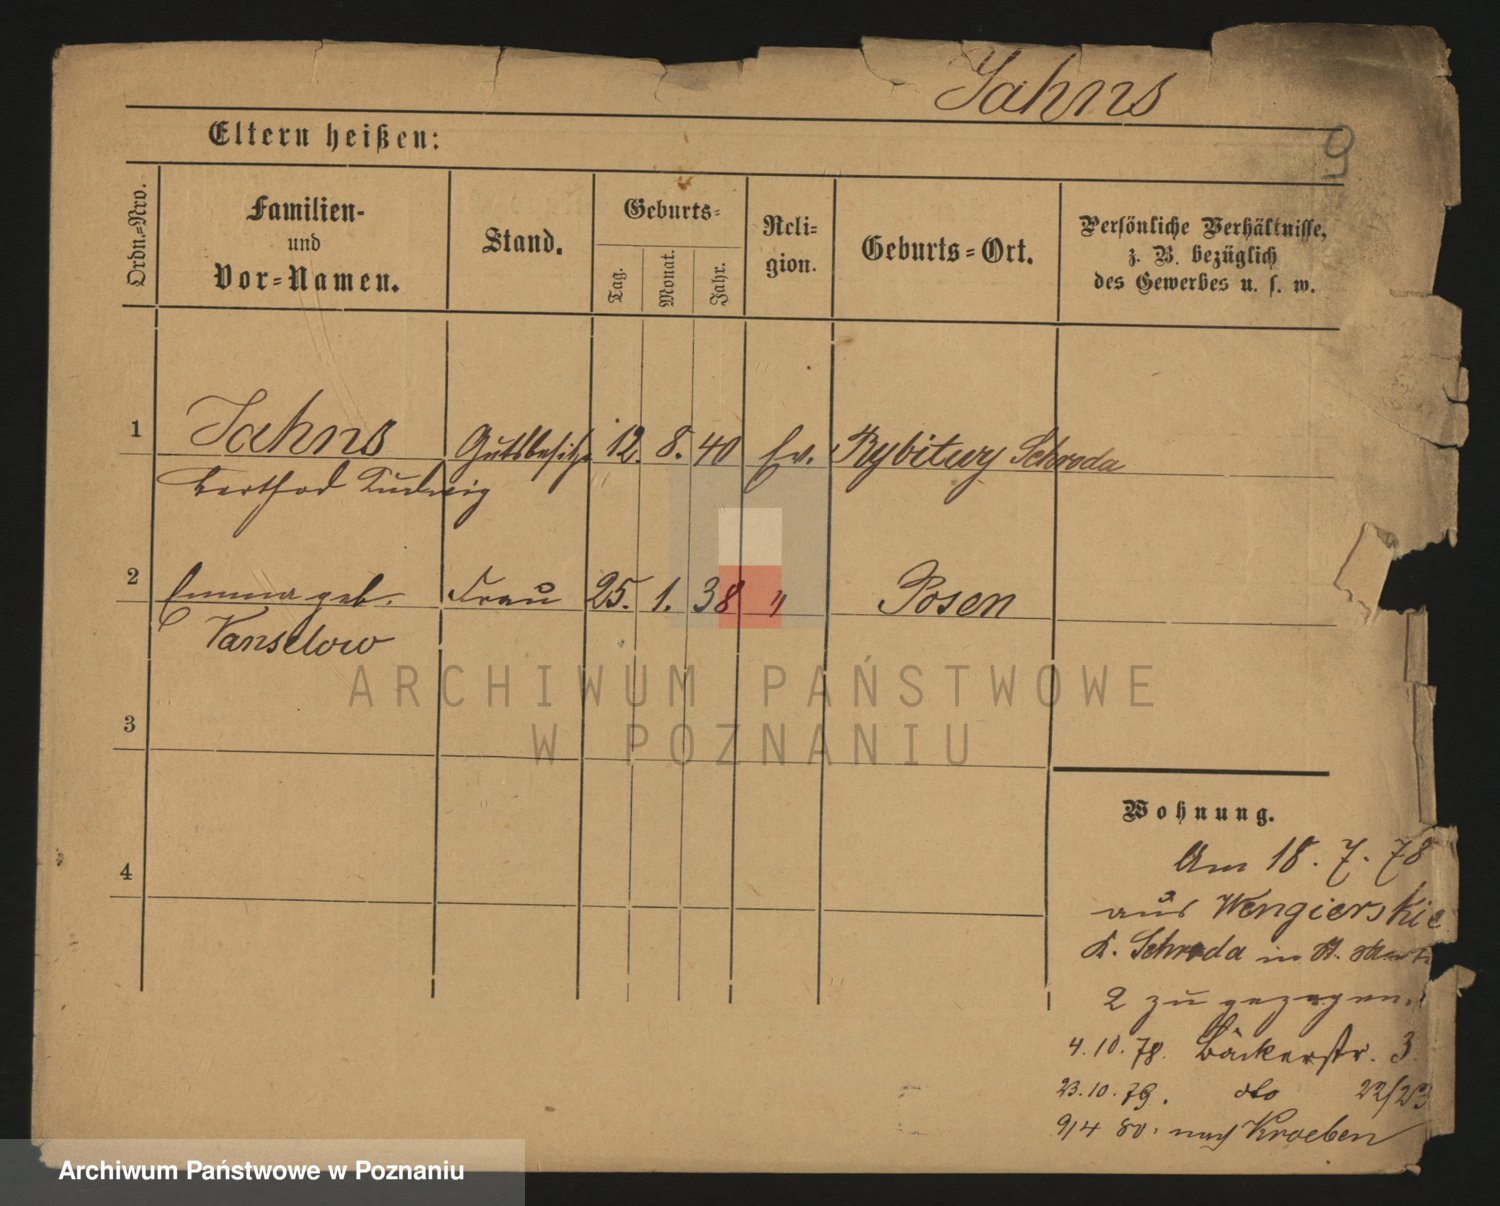 Jahns
Eltern heißen:
Ordn.-Nro.
Familien-
und
Vor-Namen.
Stand.
Geburts-
Tag.
Monat.
Jahr.
Reli-
gion.
Geburts-Ort.
Persönliche Verhältnisse,
z. B. bezüglich
des Gewerbes u. s. w.
1 Jahns Gutsbesitzer 12. 8. 40 Ev. Rybitwy Schroda
Berthod Ludwig
2 Emma geb. Frau 25. 1. 38 " Posen
Vanselow
3
4
Wohnung.
Am 18. 7. 78
aus Wengierskie
K. Schroda in St. Mart
2 zugezogen.
4. 10. 78. Bäckerstr. 3.
23. 10. 79. dto 22/23
9/4 80. nach Kroeben
ARCHIWUM PAŃSTWOWE
W POZNANIU
Archiwum Państwowe w Poznaniu